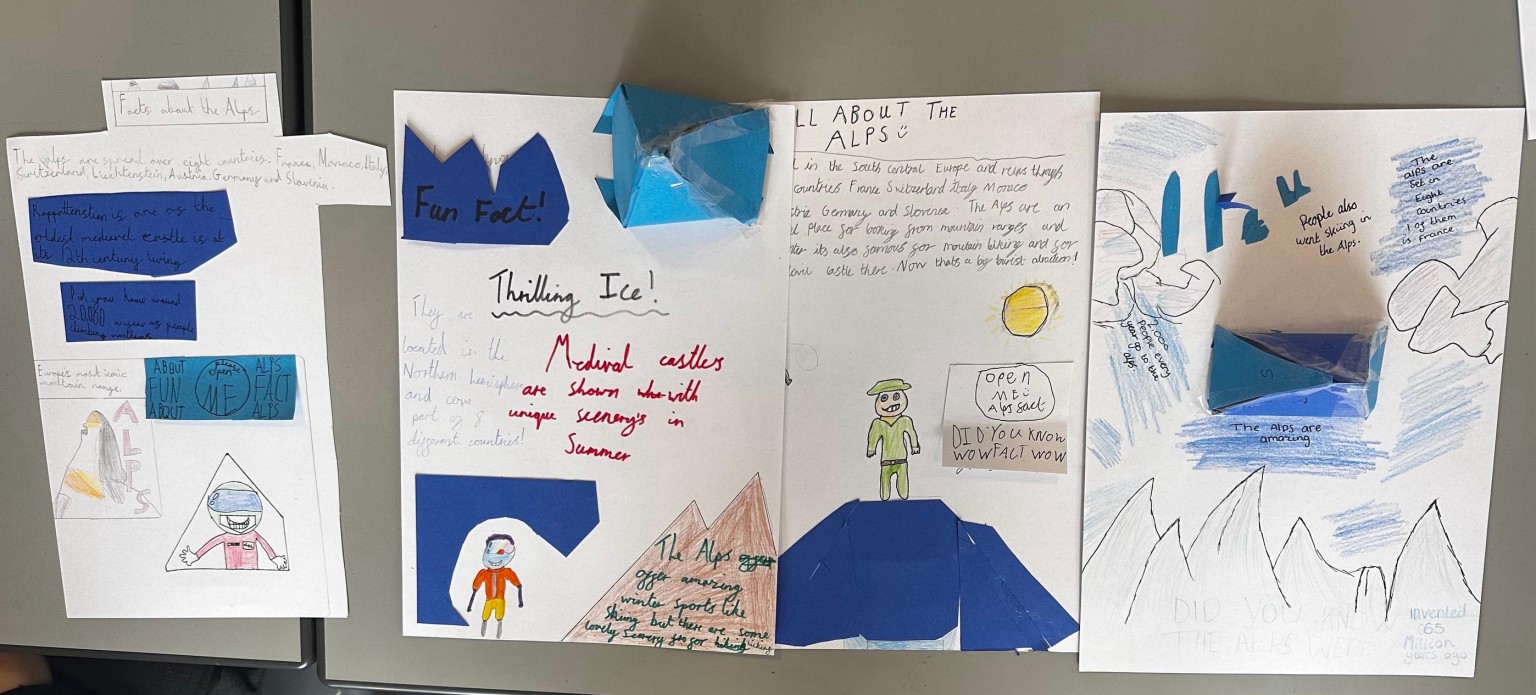 Facts about the Alps
The Alps are spread over eight countries: France, Monaco, Italy,
Switzerland, Liechtenstein, Austria, Germany and Slovenia.
is one os the
oldest medieval castle is at
12th century living
Did you know around
20,000 a year os people
climbing
Europe's most iconic
mountain range.
ABOUT
FUN
ABOUT
please
open
ME
ALPS
FACT
ALPS
ALPS
Fun Fact!
Thrilling Ice!
They are
located in the
Northern hemisphere
and cover
part of 8
different countries!
Medival castles
are shown with
unique scenery's in
Summer
The Alps
offer amazing
winter sports like
skiing but there are some
lovely scenery for
LL ABOUT THE
ALPS
in the South central Europe and runs through
countries France Switzerland Italy Monaco
Germany and Slovenia. The Alps are an
place for looking from mountain ranges and
its also famous for mountain biking and for
castle there. Now thats a big tourist
OPEN
ME
Alps fact
DID YOU KNOW
WOW FACT WOW
People also
went skiing in
the Alps.
The
alps are
set in
Eight
countries
1 of them
is France.
people every
year go to the
alps
The Alps are
amazing
DID YOU KN
THE ALPS WERE
invented
65
Million
years ago